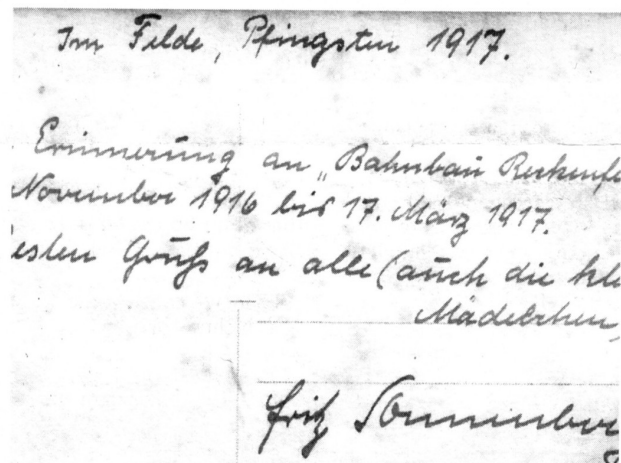 Im Felde, Pfingsten 1917.
Erinnerung an „Bahnbau Reckenfe
November 1916 bis 17. März 1917.
esten Gruß an alle (auch die kle
Mädelchen,
Fritz Sonnenburg